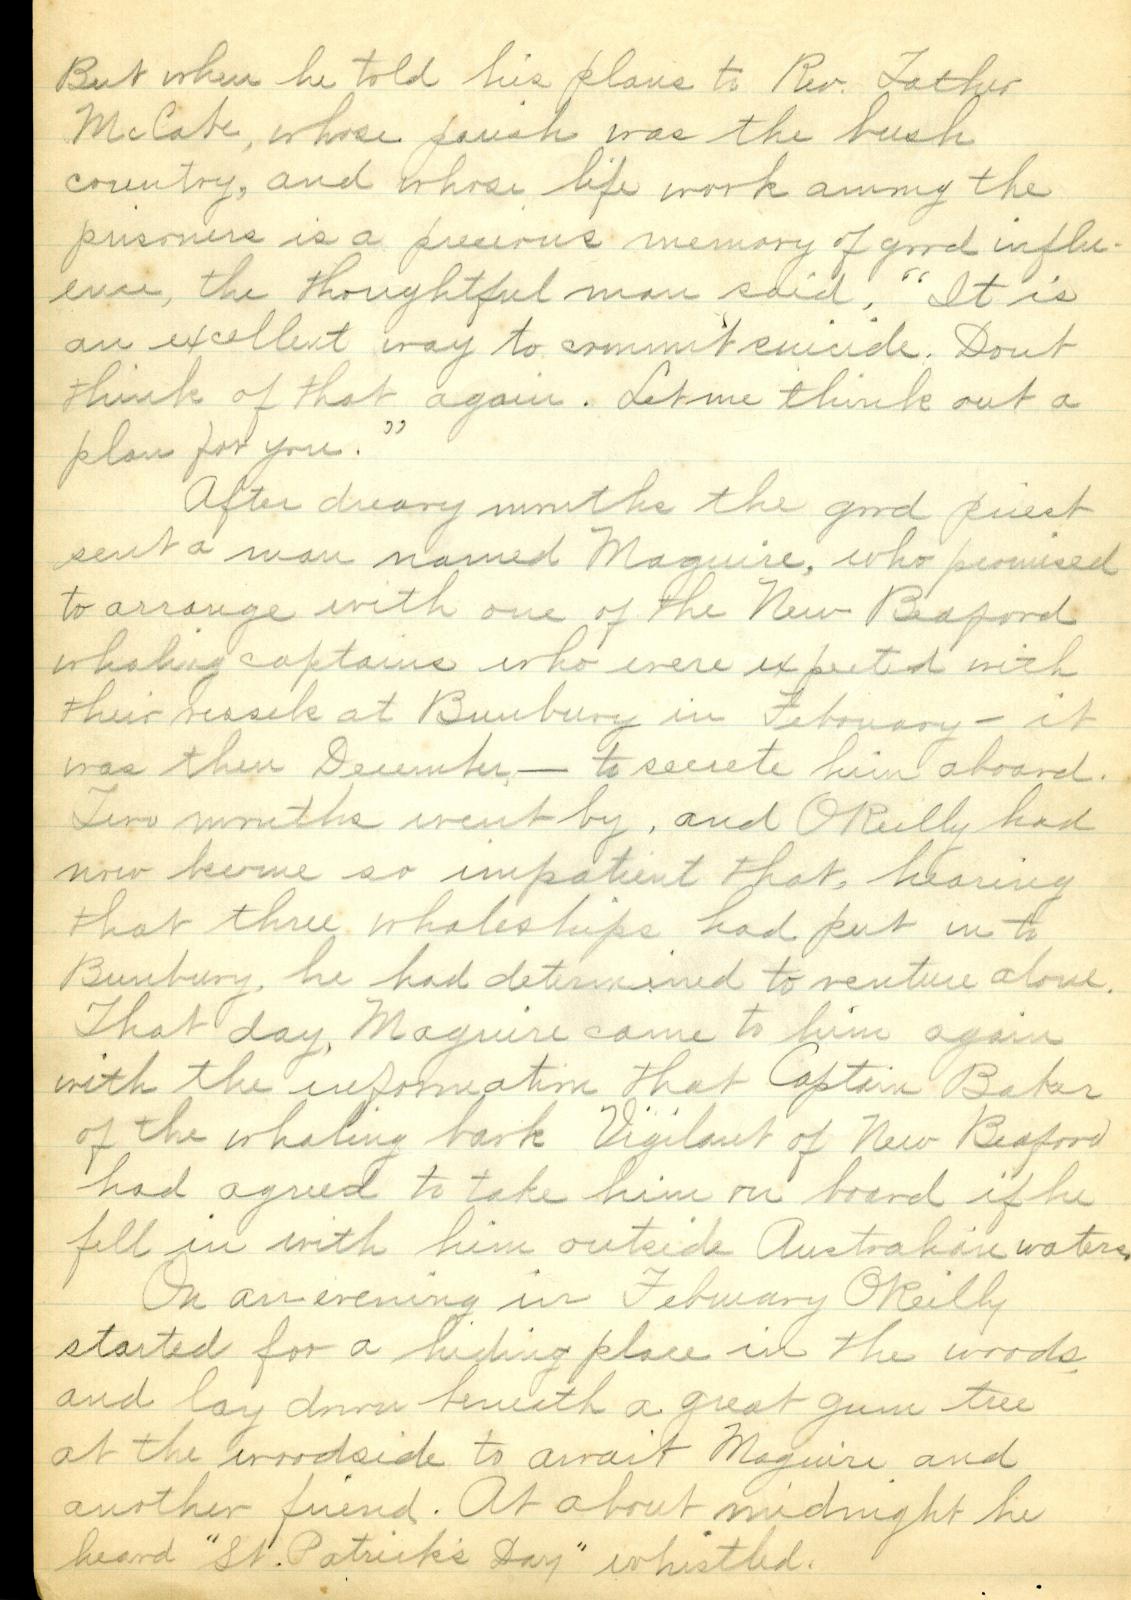 But when he told his plans to Rev. Father
McCabe, whose parish was the bush
country, and whose life work among the
prisoners is a precious memory of good influ-
ence, the thoughtful man said, "It is
an excellent way to commit suicide. Dont
think of that again. Let me think out a
plan for you."
After dreary months the good priest
sent a man named Maguire, who promised
to arrange with one of the New Bedford
whaling captains who were expected with
their vessels at Bunbury in February - it
was then December, — to secrete him aboard.
Two months went by, and OReilly had
now become so impatient that, hearing
that three whaleships had put in to
Bunbury, he had determined to venture alone.
That day, Maguire came to him again
with the information that Captain Baker
of the whaling bark Vigilant of New Bedford
had agreed to take him on board if he
fell in with him outside Australian waters.
On an evening in February OReilly
started for a hiding place in the woods,
and lay down beneath a great gum tree
at the woodside to await Maguire and
another friend. At about midnight he
heard "St. Patrick's Day" whistled.